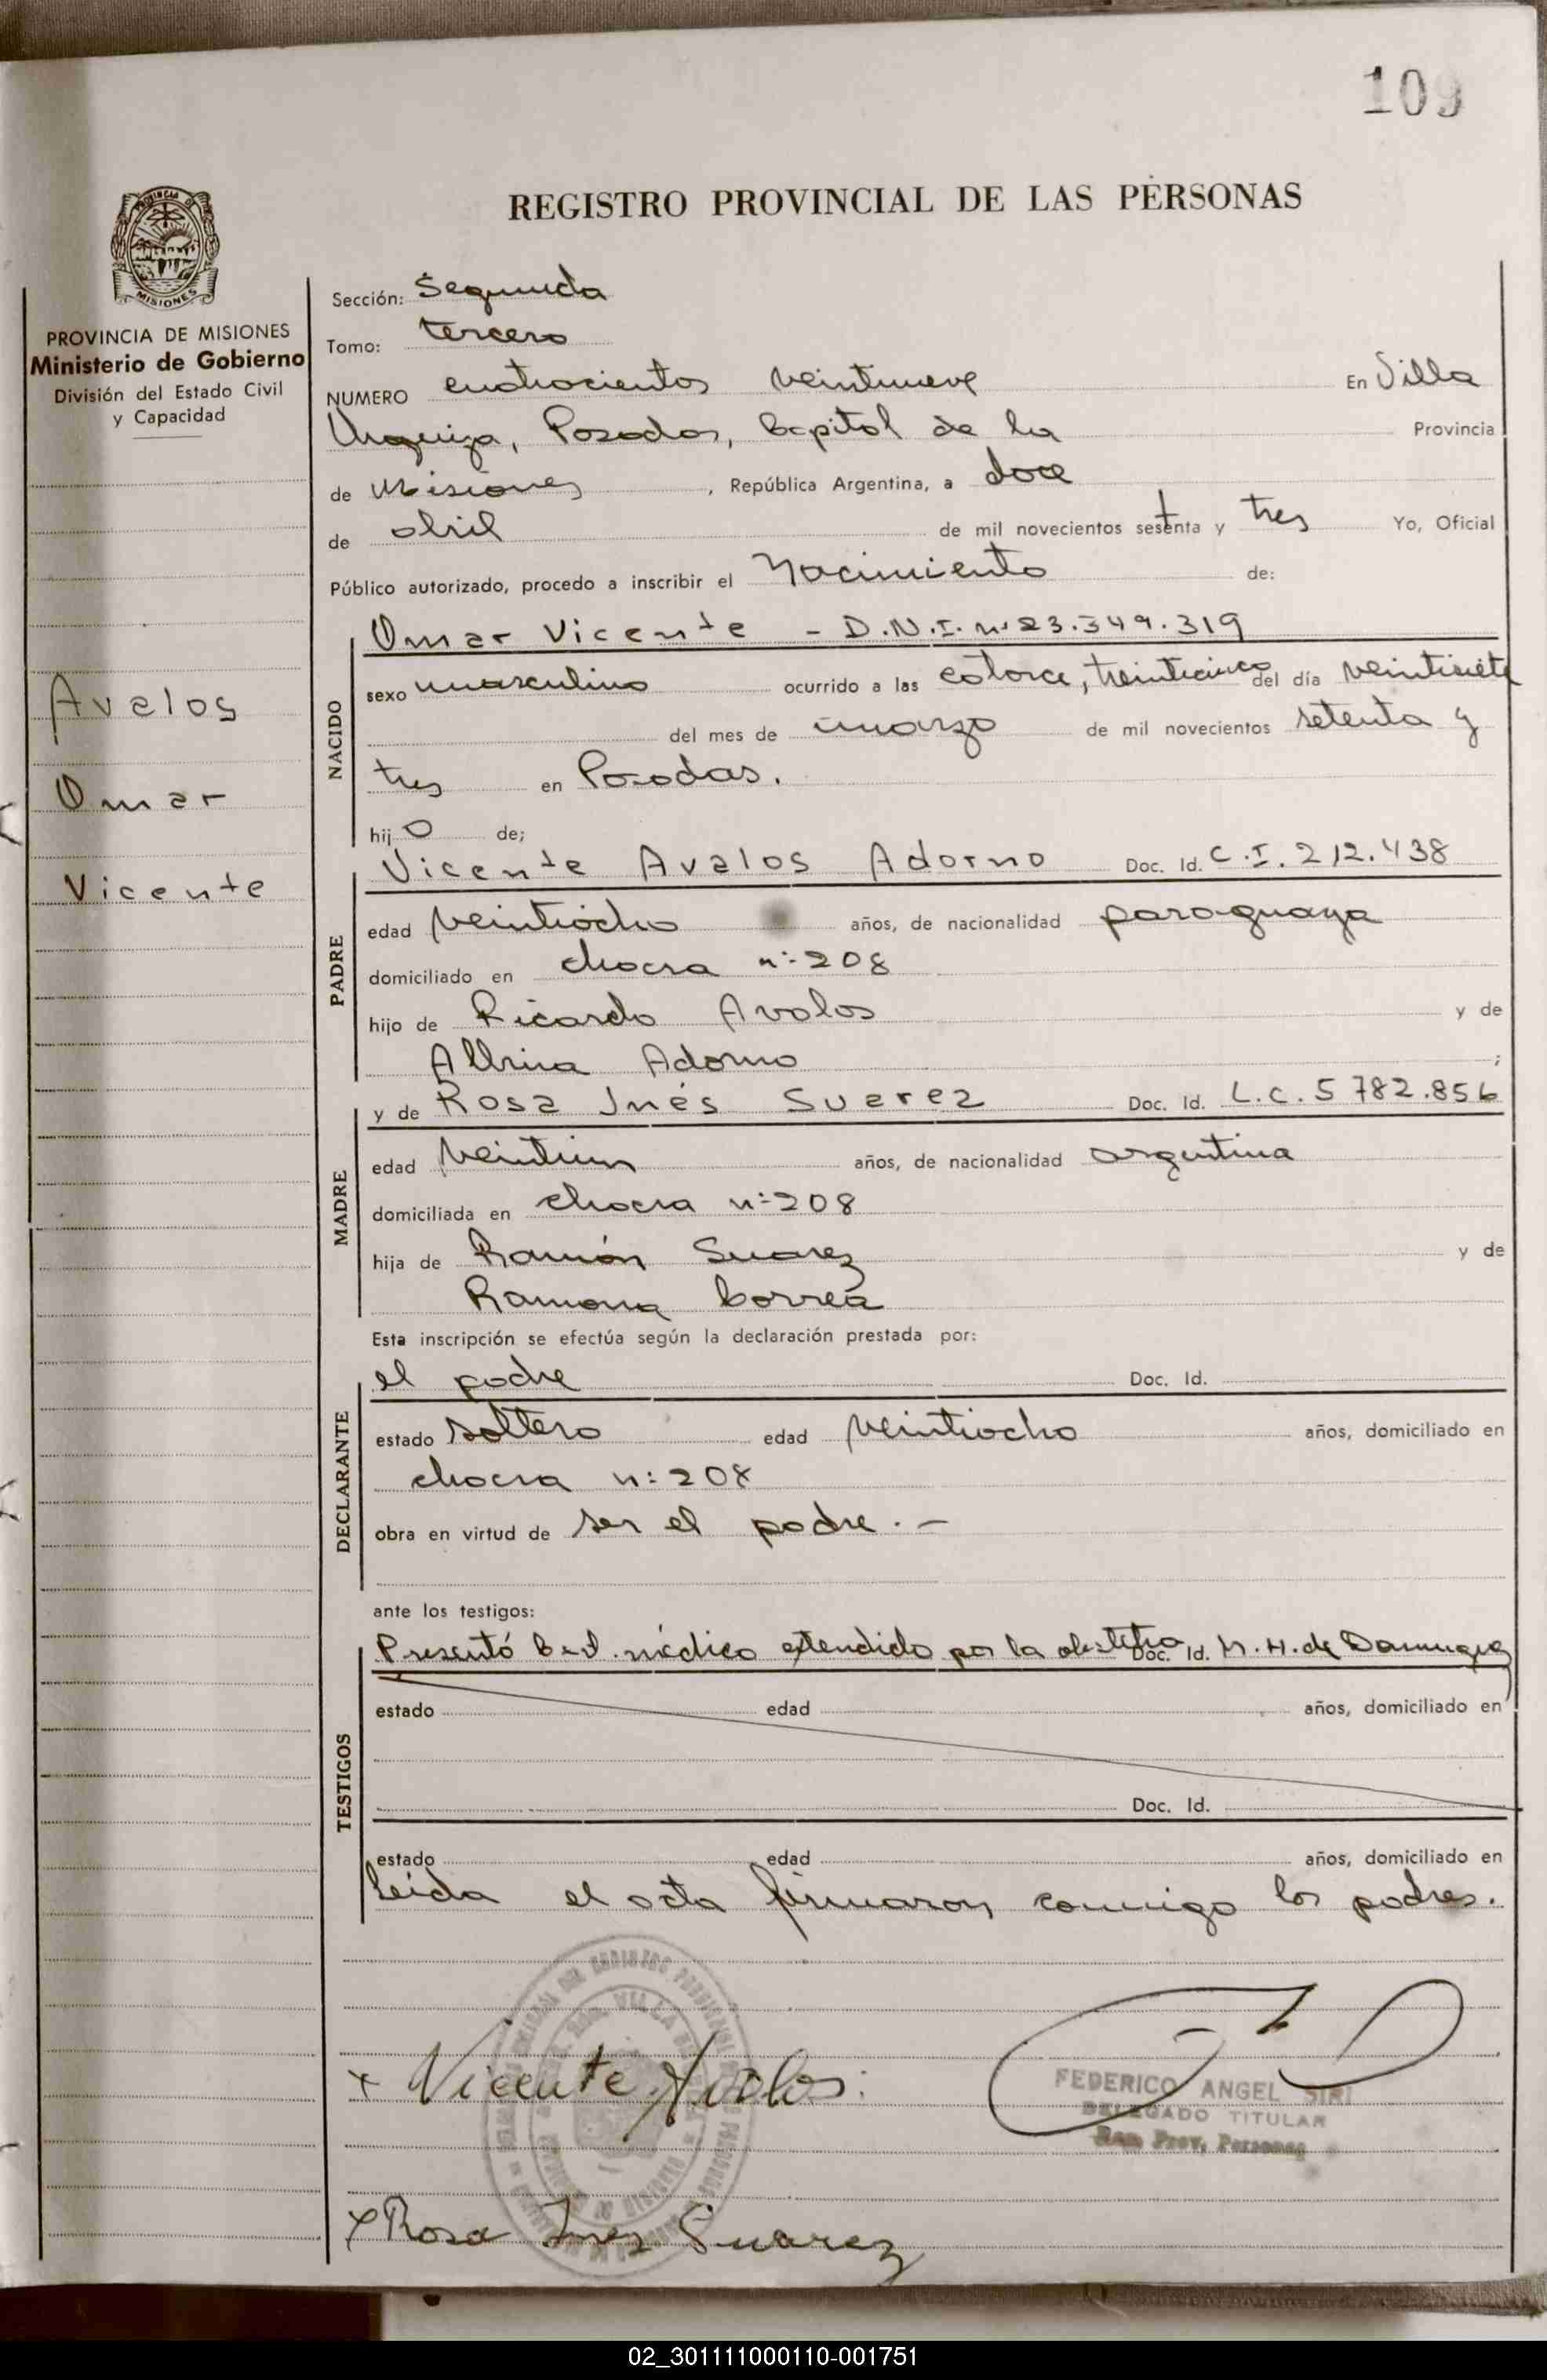 109
REGISTRO PROVINCIAL DE LAS PERSONAS
PROVINCIA DE MISIONES
Ministerio de Gobierno
División del Estado Civil
y Capacidad
Avalos
Omar
Vicente
Sección: Segunda
Tomo: tercero
NUMERO cuatrocientos veintinueve En Villa
Urquiza, Posadas, Capital de la Provincia
de Misiones, República Argentina, a doce
de abril de mil novecientos sesenta y tres Yo, Oficial
Público autorizado, procedo a inscribir el Nacimiento de:
NACIDO
Omar Vicente - D.N.I. nº 23.349.319
sexo masculino ocurrido a las catorce, treinticinco del día veintisiete
del mes de marzo de mil novecientos setenta y
tres en Posadas.
hijo de;
PADRE
Vicente Avalos Adorno Doc. Id. C.I. 212.438
edad veintiocho años, de nacionalidad paraguaya
domiciliado en chacra nº 208
hijo de Ricardo Avalos y de
Albina Adorno ;
MADRE
y de Rosa Inés Suarez Doc. Id. L.C. 5 782.856
edad veintiun años, de nacionalidad argentina
domiciliada en chacra nº 208
hija de Ramón Suarez y de
Ramona Correa
Esta inscripción se efectúa según la declaración prestada por:
DECLARANTE
el padre Doc. Id.
estado soltero edad veintiocho años, domiciliado en
chacra nº 208
obra en virtud de ser el padre. -
ante los testigos:
TESTIGOS
Presentó Cert. médico extendido por la obstetra Doc. Id. H. de
estado edad años, domiciliado en
Doc. Id.
estado edad años, domiciliado en
Leída el acta firmaron conmigo los padres.
x Vicente Avalos
FEDERICO ANGEL SIRI
DELEGADO TITULAR
Reg. Prov. Personas
x Rosa Inez Suarez
02_301111000110-001751